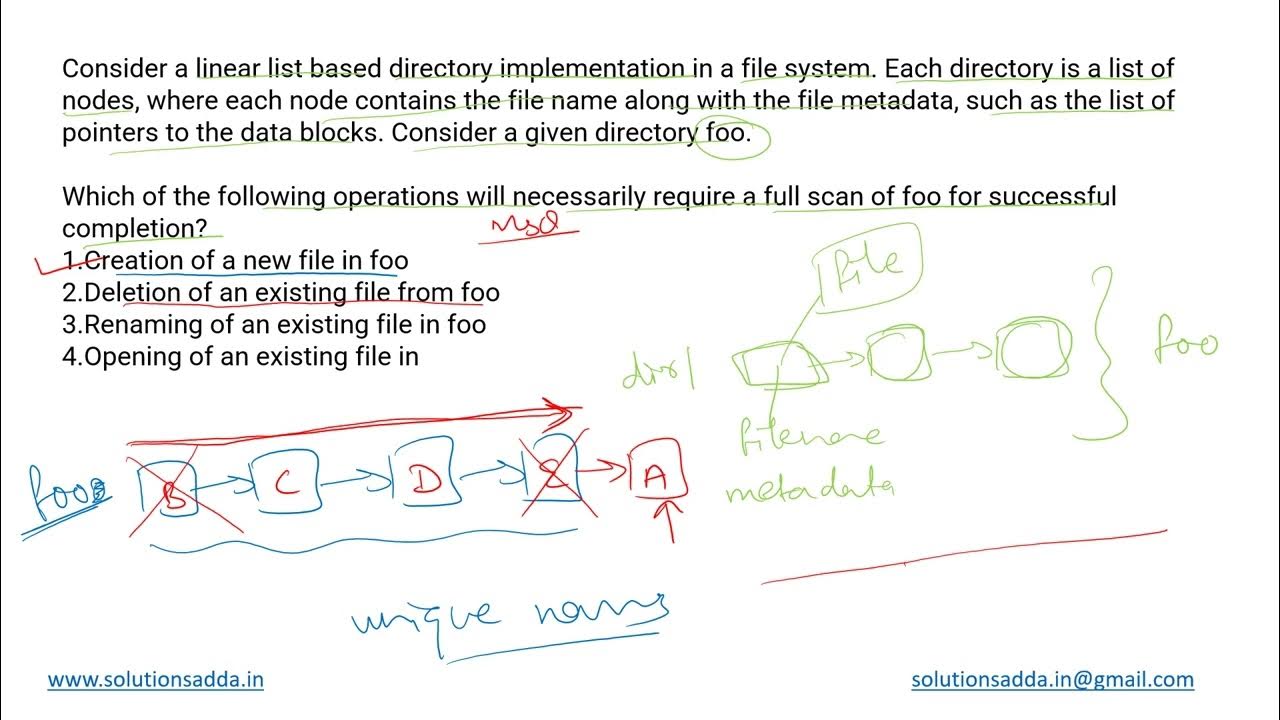 Consider a linear list based directory implementation in a file system. Each directory is a list of
nodes, where each node contains the file name along with the file metadata, such as the list of
pointers to the data blocks. Consider a given directory foo.
Which of the following operations will necessarily require a full scan of foo for successful
completion?
MSQ
1.Creation of a new file in foo
2.Deletion of an existing file from foo
3.Renaming of an existing file in foo
4.Opening of an existing file in
file
dir/
foo
filename
metadata
foo
B C D A
unique name
www.solutionsadda.in
solutionsadda.in@gmail.com